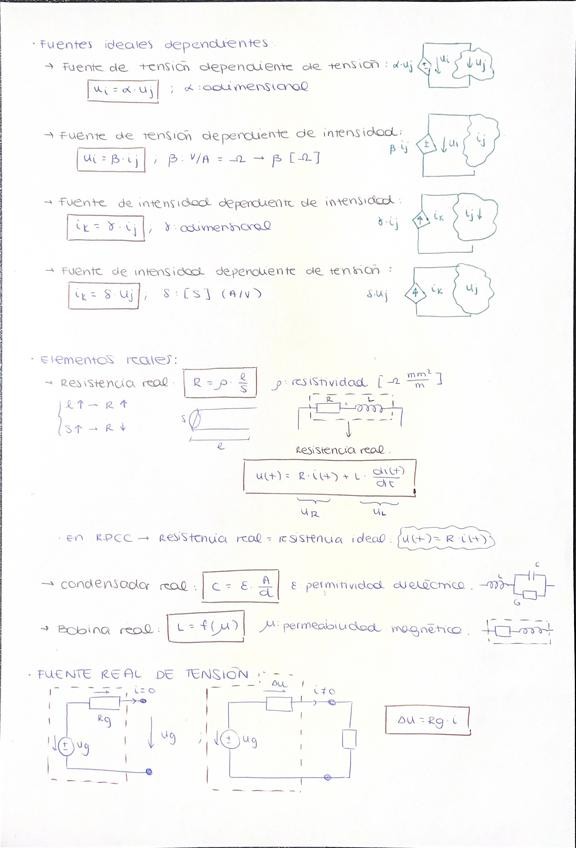 · Fuentes ideales dependientes
→ Fuente de tensión dependiente de tensión: α·uj ui uj
ui = α·uj ; α: adimensional
→ Fuente de tensión dependiente de intensidad:
β ij ui ij
ui = β·ij , β: V/A = Ω → β [Ω]
→ Fuente de intensidad dependiente de intensidad:
iK = γ·ij , γ: adimensional γ·ij iK ij
→ Fuente de intensidad dependiente de tensión:
iK = δ·uj , δ: [S] (A/V) δ·uj iK uj
· Elementos reales:
→ Resistencia real: R = ρ· l/S ρ: resistividad [Ω mm²/m]
l↑ → R↑
S↑ → R↓
S l
R L
Resistencia real.
u(t) = R·i(t) + L· di(t)/dt
uR uL
· en RPCC → Resistencia real = resistencia ideal: u(t) = R·i(t)
→ Condensador real: C = ε· A/d ε permitividad dieléctrica. L C G
→ Bobina real: L = f(μ) μ: permeabilidad magnética.
· FUENTE REAL DE TENSIÓN:
i=0 Δu i≠0
Rg Δu = Rg·i
ug ug ; ug